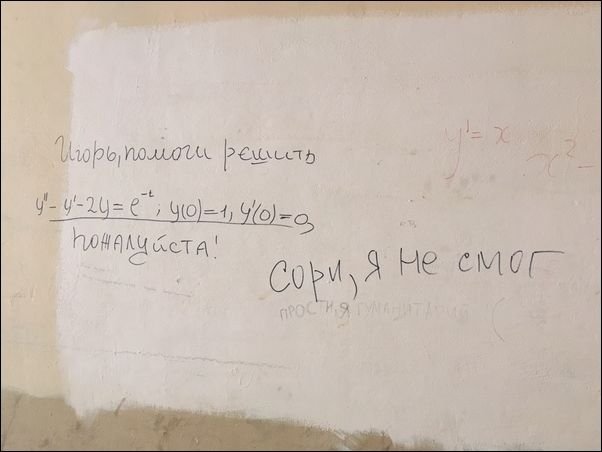 Игорь, помоги решить
y''- y'- 2y = e^-t; y(0)=1, y'(0)=0,
пожалуйста!
y' = x
x² -
Сори, я не смог
ПРОСТИ, Я ГУМАНИТАРИЙ